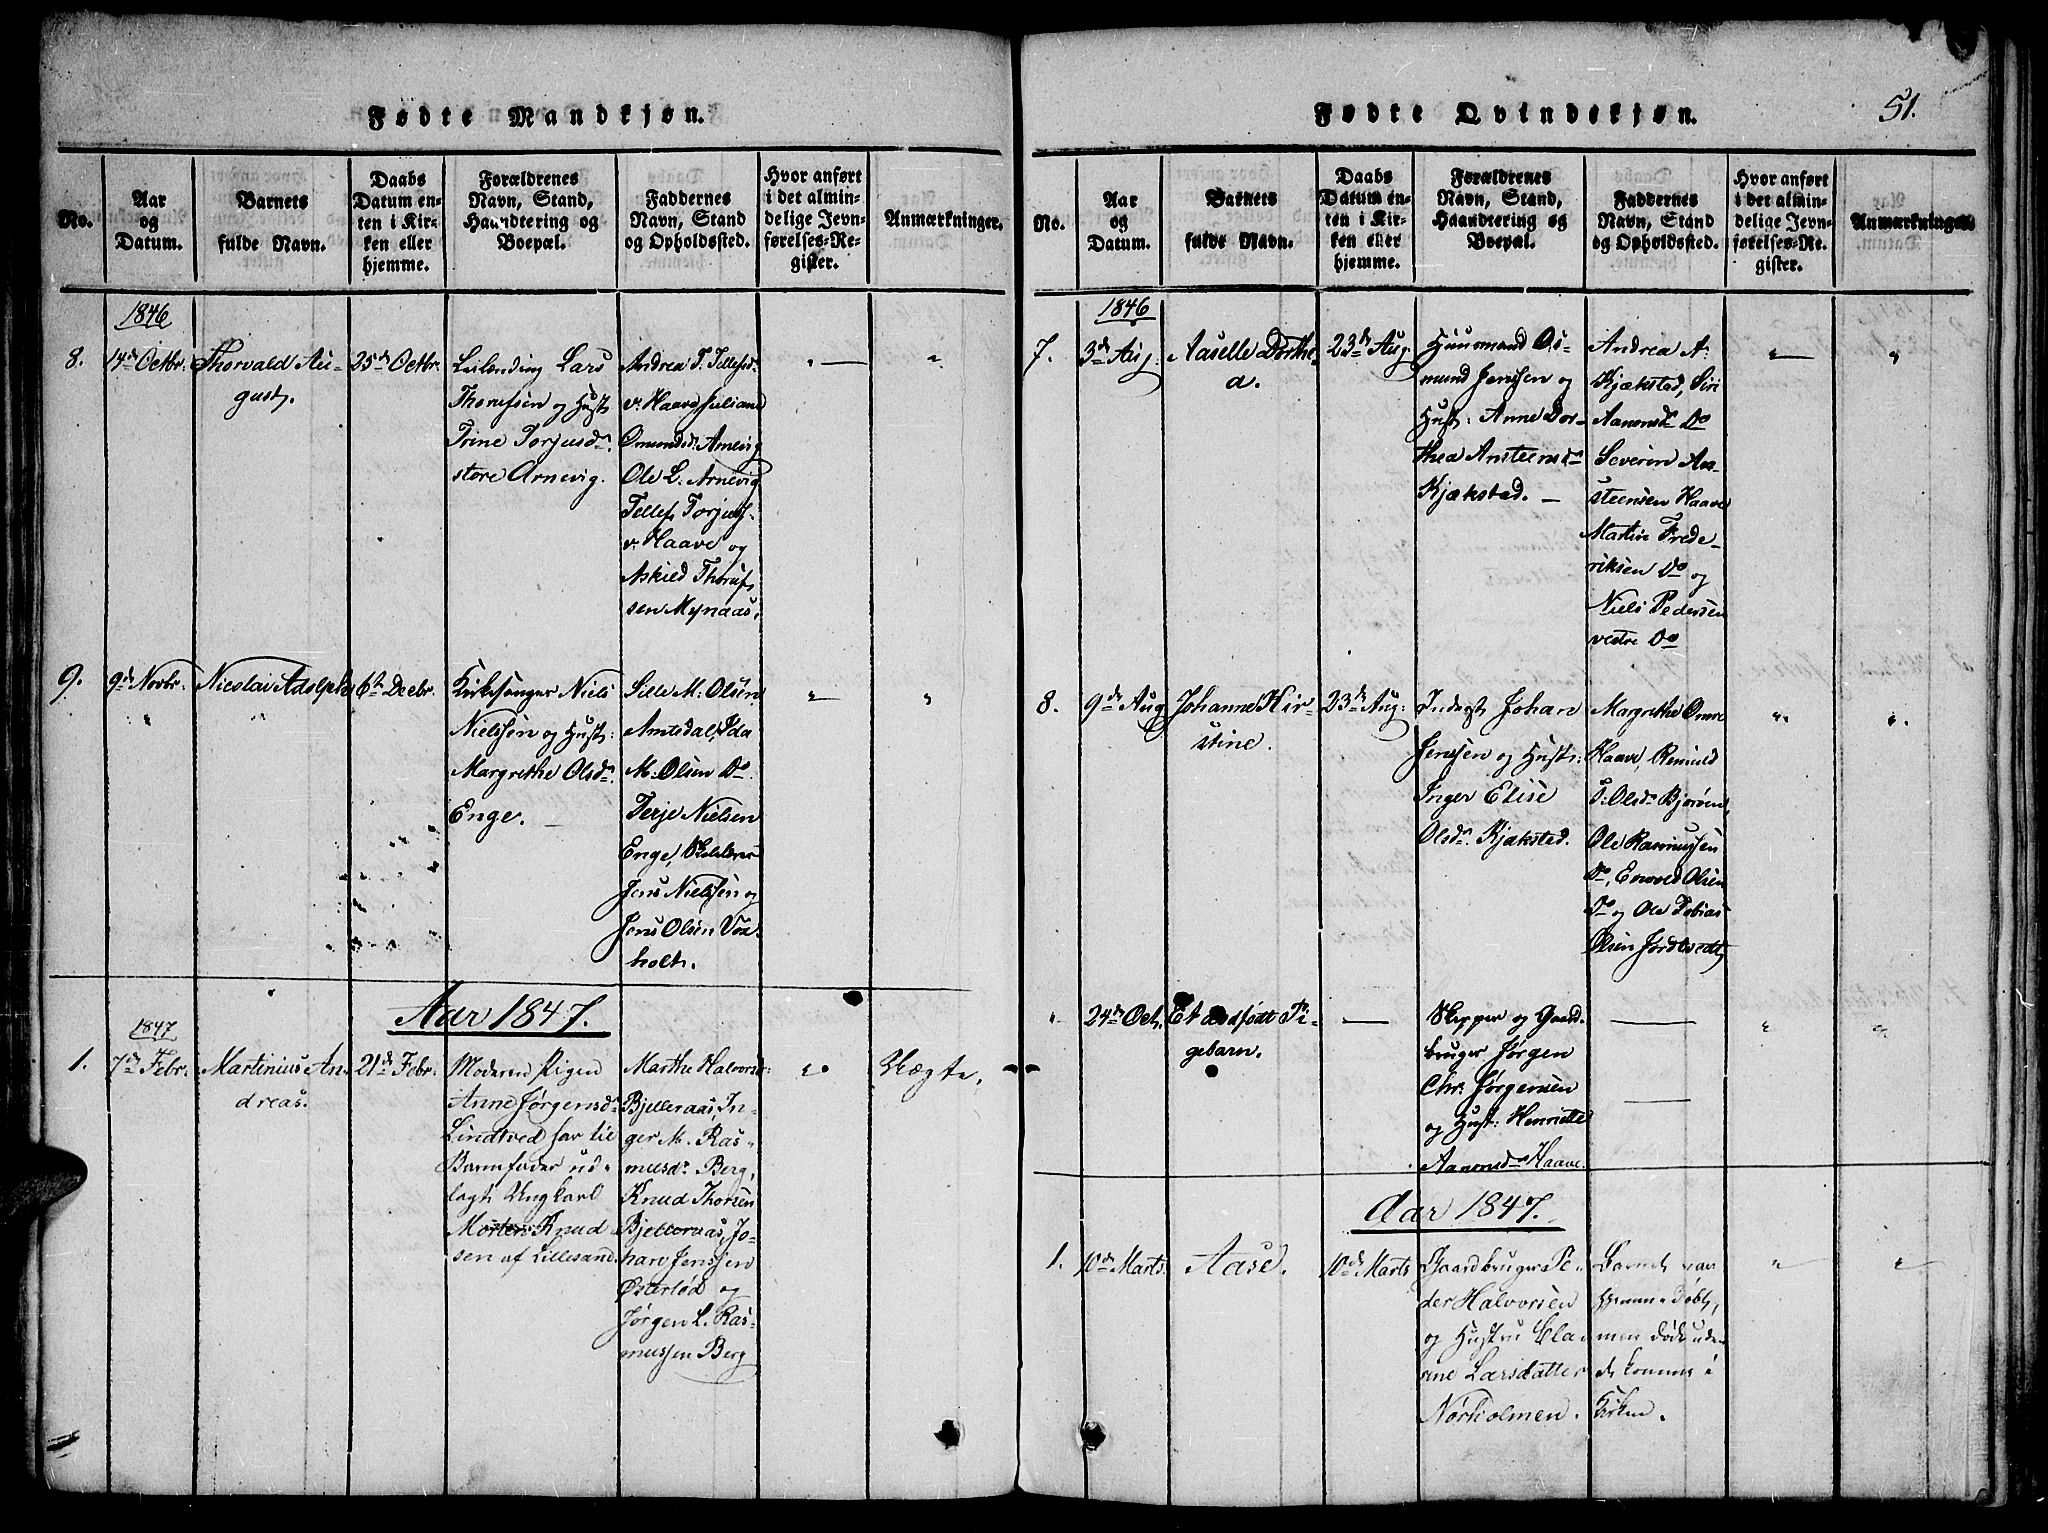 Fødte Mandkjøn.
No.
Aar
og
Datum.
Barnets
fulde Navn.
Daabs
Datum en-
ten i Kir-
ken eller
hjemme.
Forældrenes
Navn, Stand,
Haandtering og
Boepæl.
Faddernes
Navn, Stand
og Opholdssted.
Hvor anført
i det almin-
delige Jevn-
førelses-Re-
gister.
Anmærkninger.
1846
8.
14de Octbr.
Thorvald Au-
gust.
25de Octbr.
Leilænding Lars
Thorufsen og Hust
Trine Torjusdr.
store Arnevig.
Andrea T. Tellefsdr
v. Haave, Juliane
Omundsd. Arnevig
Ole L. Arnevig
Tellef Torjus-
v. Haave og
Askild Thoruf-
sen Mynaas.
" —
"
9.
9de Novbr.
Nicolai Adolph
6te Decbr.
Kirkesanger Niels
Nielsen og Hust:
Margrethe Olsdr.
Enge. —
Sille M. Olsen
Amtedal, Ida
M. Olsen Do.
Terje Nielsen
Enge,
Jens Nielsen og
Jens Olsen Vox-
holt.
"
"
Aar 1847.
1847
1.
7de Febr.
Martinius An-
dreas.
21de Febr.
Moderen Pigen
Anne Jørgensdr
Lindtved har til
Barnefader ud-
lagt Ungkarl
Morten Knud
sen af Lillesand.
Marthe Halvorsd:
Bjelleraas, In-
ger M. Ras-
musdr. Berg,
Knud Thorsen
Bjelleraas, Jo-
han Jenssen
Østerlød og
Jørgen L. Ras-
mussen Berg
"
Uægte.
Fødte Qvindekjøn.
51.
No.
Aar
og
Datum.
Barnets
fulde Navn.
Daabs
Datum en-
ten i Kir-
ken eller
hjemme.
Forældrenes
Navn, Stand,
Haandtering og
Boepæl.
Faddernes
Navn, Stand
og Opholdssted.
Hvor anført
i det almin-
delige Jevn-
førelses-Re-
gister.
Anmærkninger.
1846
7.
3de Aug.
Aaselle Dorthe-
a.
23de Aug
Huusmand Os-
mund Jenssen og
Hust: Anne Dor-
thea Ansteensdr
Kjækstad. —
Andrea A.
Kjækstad, Siri
Aanonsdr Do
Severin An-
steensen Haave
Martin Frede-
riksen Do og
Niels Pedersen
vestre Do
" —
"
8.
9de Aug
Johanne Kir-
stine.
23de Aug:
Inderst Johan
Jenssen og Hustr:
Inger Elise
Olsdr. Kjækstad.
Margrethe
Haave,
T: Olsdr Bjorøen,
Ole Rasmussen
Do, Enoved Olsen
Do og Ole Tobias
Olsen
"
"
"
24de Oct.
Et dødfødt Pi-
gebarn.
—
Skipper og Gaard-
bruger Jørgen
Chr. Jørgensen
og Hust: Henriette
Aanonsdr Haave.
—
"
"
Aar 1847.
1.
10de Marts.
Aase.
10de Marts
Gaardbruger Pe-
der Halvorsen
og Hustru Ela-
rine Larsdatter
Nørholmen.
Barnet var
hjemmedøbt,
men døde uden
at komme i
Kirken.
"
"